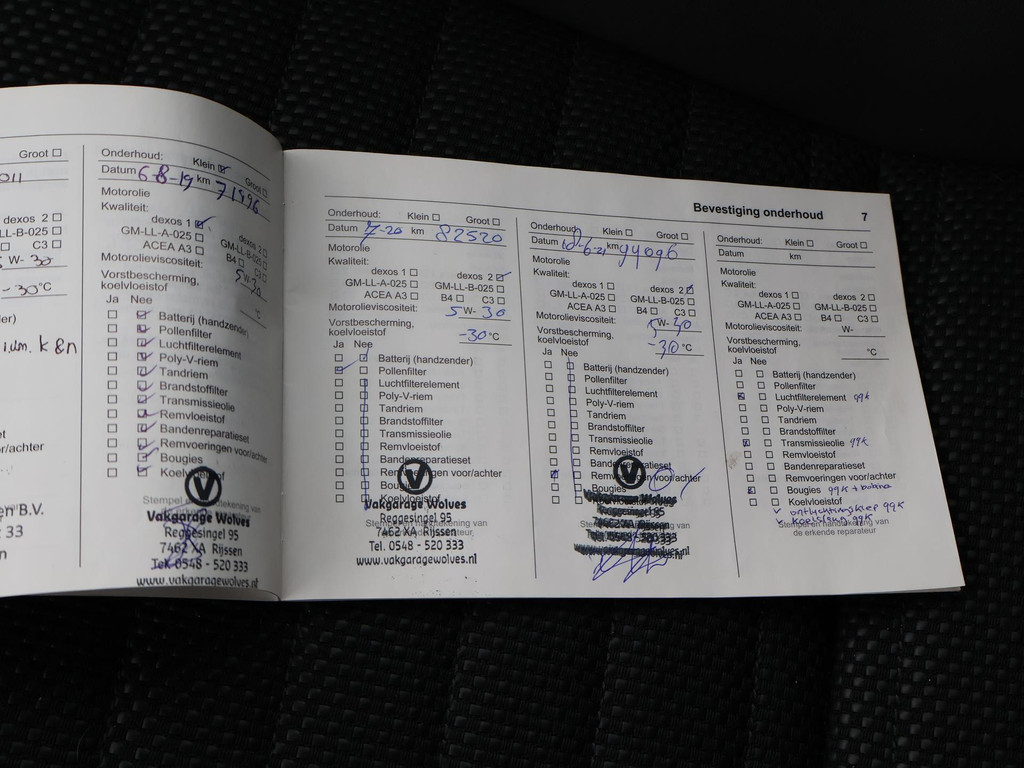 Groot ☐
011
dexos 2 ☐
LL-B-025 ☐
C3 ☐
5 W- 30
-30°C
i.v.m. k&n
or/achter
en B.V.
33
Onderhoud: Klein ☑ Groot ☐
Datum 6-8-19 km 71996
Motorolie
Kwaliteit:
dexos 1 ☑ dexos 2 ☐
GM-LL-A-025 ☐ GM-LL-B-025 ☐
ACEA A3 ☐ B4 ☐ C3 ☐
Motorolieviscositeit: 5W-30
Vorstbescherming,
koelvloeistof °C
Ja Nee
☐ ☑ Batterij (handzender)
☐ ☑ Pollenfilter
☐ ☑ Luchtfilterelement
☐ ☑ Poly-V-riem
☐ ☑ Tandriem
☐ ☑ Brandstoffilter
☐ ☑ Transmissieolie
☐ ☑ Remvloeistof
☐ ☑ Bandenreparatieset
☐ ☑ Remvoeringen voor/achter
☐ ☑ Bougies
☐ ☑ Koelvloeistof
Vakgarage Wolves
Reggesingel 95
7462 XA Rijssen
Tel. 0548 - 520 333
www.vakgaragewolves.nl
Bevestiging onderhoud 7
Onderhoud: Klein ☐ Groot ☐
Datum 7-20 km 82520
Motorolie
Kwaliteit:
dexos 1 ☐ dexos 2 ☑
GM-LL-A-025 ☐ GM-LL-B-025 ☐
ACEA A3 ☐ B4 ☐ C3 ☐
Motorolieviscositeit: 5W- 30
Vorstbescherming,
koelvloeistof -30°C
Ja Nee
☐ ☐ Batterij (handzender)
☑ ☐ Pollenfilter
☐ ☐ Luchtfilterelement
☐ ☐ Poly-V-riem
☐ ☐ Tandriem
☐ ☐ Brandstoffilter
☐ ☐ Transmissieolie
☐ ☐ Remvloeistof
☐ ☐ Bandenreparatieset
☐ ☐ Remvoeringen voor/achter
☐ ☐ Bougies
☐ ☐ Koelvloeistof
Vakgarage Wolves
Reggesingel 95
7462 XA Rijssen
Tel. 0548 - 520 333
www.vakgaragewolves.nl
Onderhoud: Klein ☐ Groot ☐
Datum 18-6-21 km 94096
Motorolie
Kwaliteit:
dexos 1 ☐ dexos 2 ☑
GM-LL-A-025 ☐ GM-LL-B-025 ☐
ACEA A3 ☐ B4 ☐ C3 ☐
Motorolieviscositeit: 5W-30
Vorstbescherming,
koelvloeistof -30°C
Ja Nee
☐ ☐ Batterij (handzender)
☐ ☐ Pollenfilter
☐ ☐ Luchtfilterelement
☐ ☐ Poly-V-riem
☐ ☐ Tandriem
☐ ☐ Brandstoffilter
☐ ☐ Transmissieolie
☐ ☐ Remvloeistof
☐ ☐ Bandenreparatieset
☑ ☐ Remvoeringen voor/achter
☐ ☐ Bougies
☐ ☐ Koelvloeistof
Vakgarage Wolves
Onderhoud: Klein ☐ Groot ☐
Datum km
Motorolie
Kwaliteit:
dexos 1 ☐ dexos 2 ☐
GM-LL-A-025 ☐ GM-LL-B-025 ☐
ACEA A3 ☐ B4 ☐ C3 ☐
Motorolieviscositeit: W-
Vorstbescherming,
koelvloeistof °C
Ja Nee
☐ ☐ Batterij (handzender)
☐ ☐ Pollenfilter
☑ ☐ Luchtfilterelement 99k
☐ ☐ Poly-V-riem
☐ ☐ Tandriem
☐ ☐ Brandstoffilter
☑ ☐ Transmissieolie 99k
☐ ☐ Remvloeistof
☐ ☐ Bandenreparatieset
☐ ☐ Remvoeringen voor/achter
☑ ☐ Bougies 99k + bobine
☐ ☐ Koelvloeistof
✓ ontluchtingsklep 99k
Stempel en handtekening van
de erkende reparateur